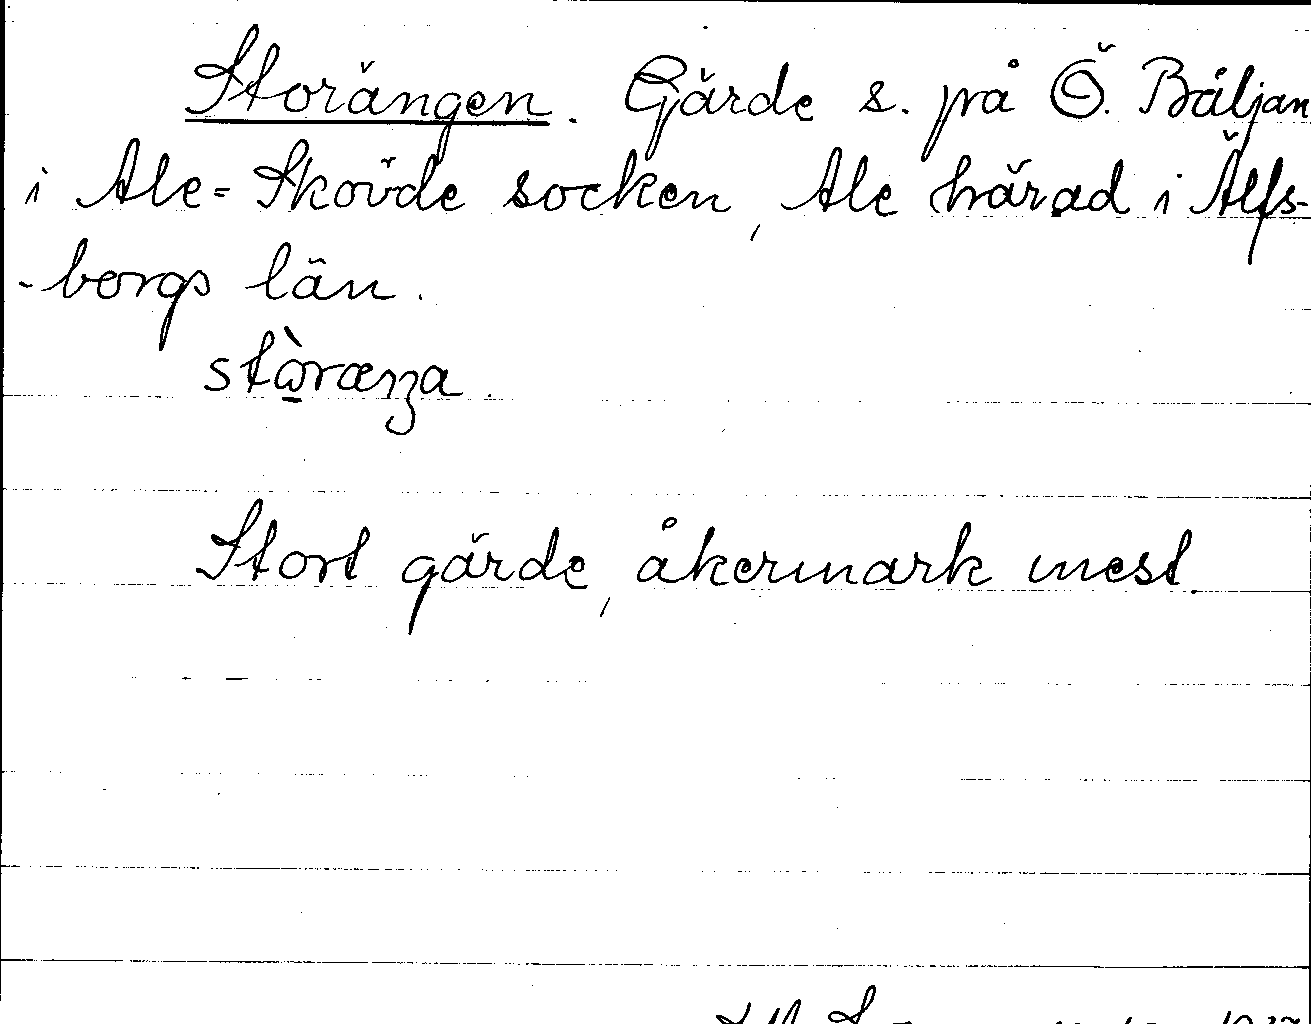 Storängen. Gärde s. på Ö. Båljan
i Ale-Skövde socken, Ale härad i Älfs-
-borgs län.
stὼ̱ræŋa.
Stort gärde, åkermark mest.